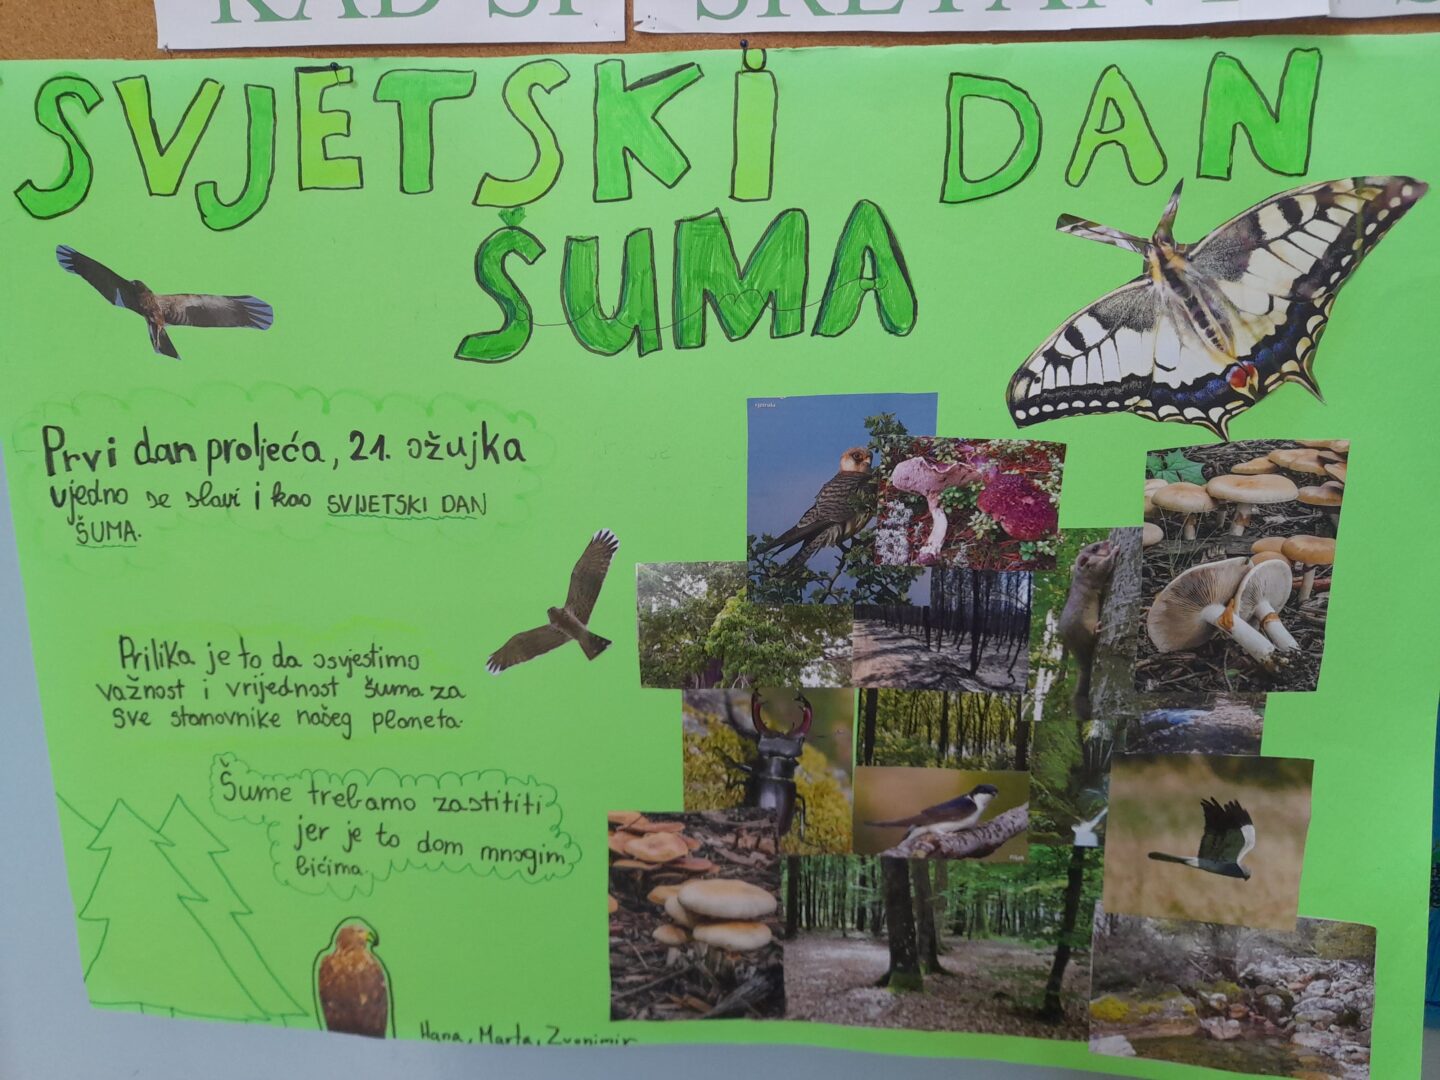 KAD SI SRETAN
SVJETSKI DAN
ŠUMA
Prvi dan proljeća, 21. ožujka
ujedno se slavi i kao SVIJETSKI DAN
ŠUMA.
Prilika je to da osvjestimo
važnost i vrijednost šuma za
sve stanovnike našeg planeta.
Šume trebamo zastititi
jer je to dom mnogim
bićima.
vjetruša
Piljak
Hana, Marta, Zvonimir